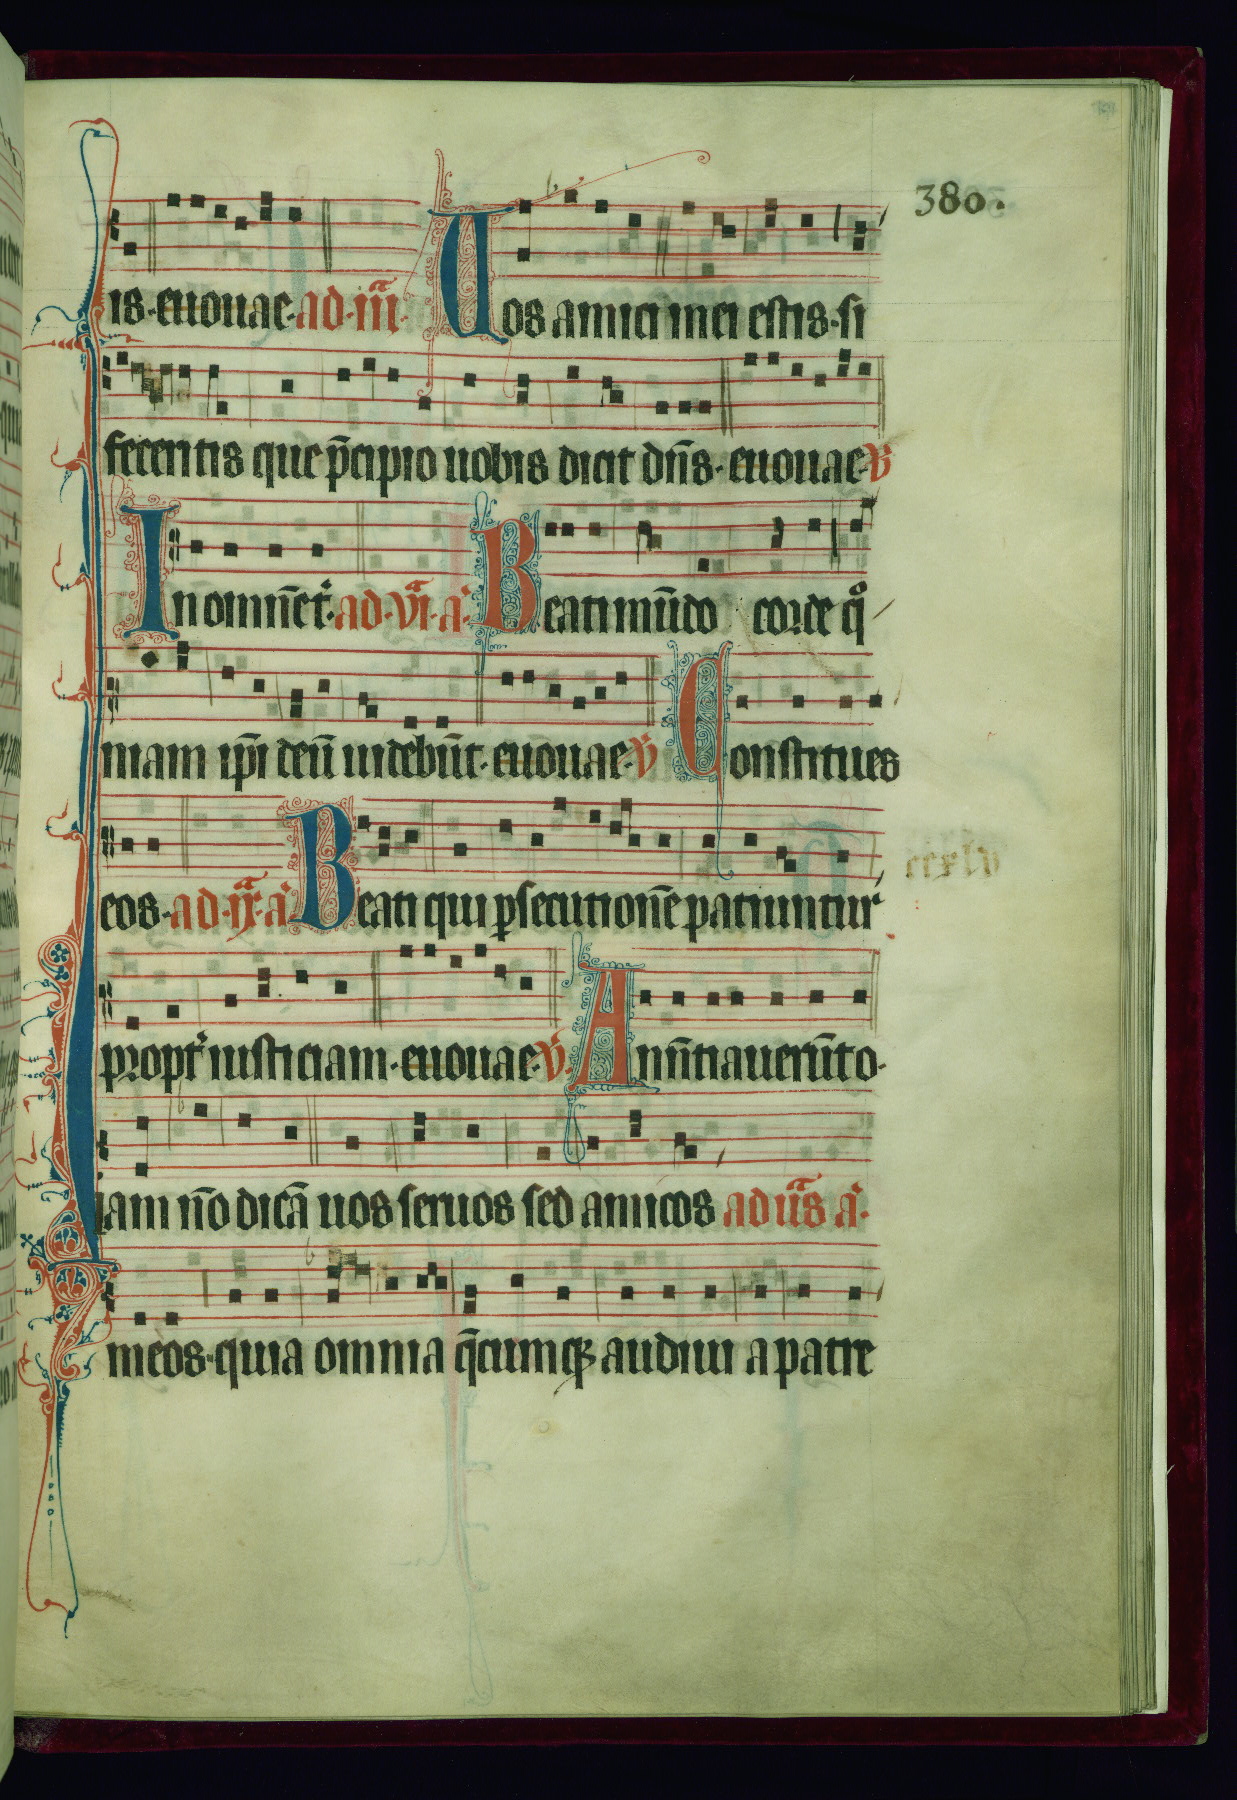 380.
is·euouae·ad·iii̅· Uos amici mei estis·si
feceritis que p̄cipio uobis dicit dn̄s· euouae·V̄
In omnē t̾r̄· ad·vi̅·a̾· Beati mūdo corde qͦ
niam ip̄i deū uidebūt· euouae·V̄ Constitues
eos·ad·ix̅·a̾ Beati qui ꝑsecutionē patiuntur
ccxlv
propt̾ iusticiam·euouae·V̄· Annūtiauerūt o·
Iam nō dicā uos seruos sed amicos ad ūs a̾·
meos·quia omnia q̄cumqꝫ audiui a patre